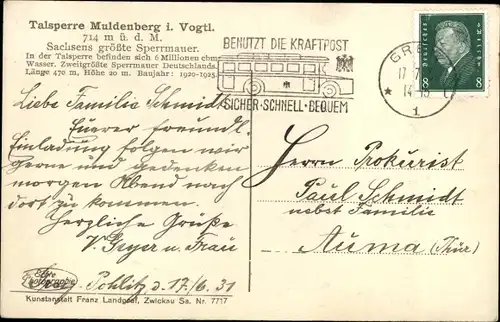 Talsperre Muldenberg i. Vogtl.
714 m ü. d. M.
Sachsens größte Sperrmauer.
In der Talsperre befinden sich 6 Millionen cbm
Wasser. Zweitgrößte Sperrmauer Deutschlands.
Länge 470 m, Höhe 20 m. Baujahr: 1920-1925.
BENUTZT DIE KRAFTPOST
SICHER·SCHNELL·BEQUEM
Deutsches Reich
8 8
Liebe Familie Schmidt
Euerer freundl.
Einladung folgen wir
gerne und gedenken
morgen Abend nach
dort zu kommen.
Herzliche Grüße
V. Geyer u. Frau
Pohlitz d. 17/6. 31
Herrn Prokurist
Paul Schmidt
nebst Familie
Auma (Thür)
Echte Photographie
Kunstanstalt Franz Landgraf, Zwickau Sa. Nr. 7717